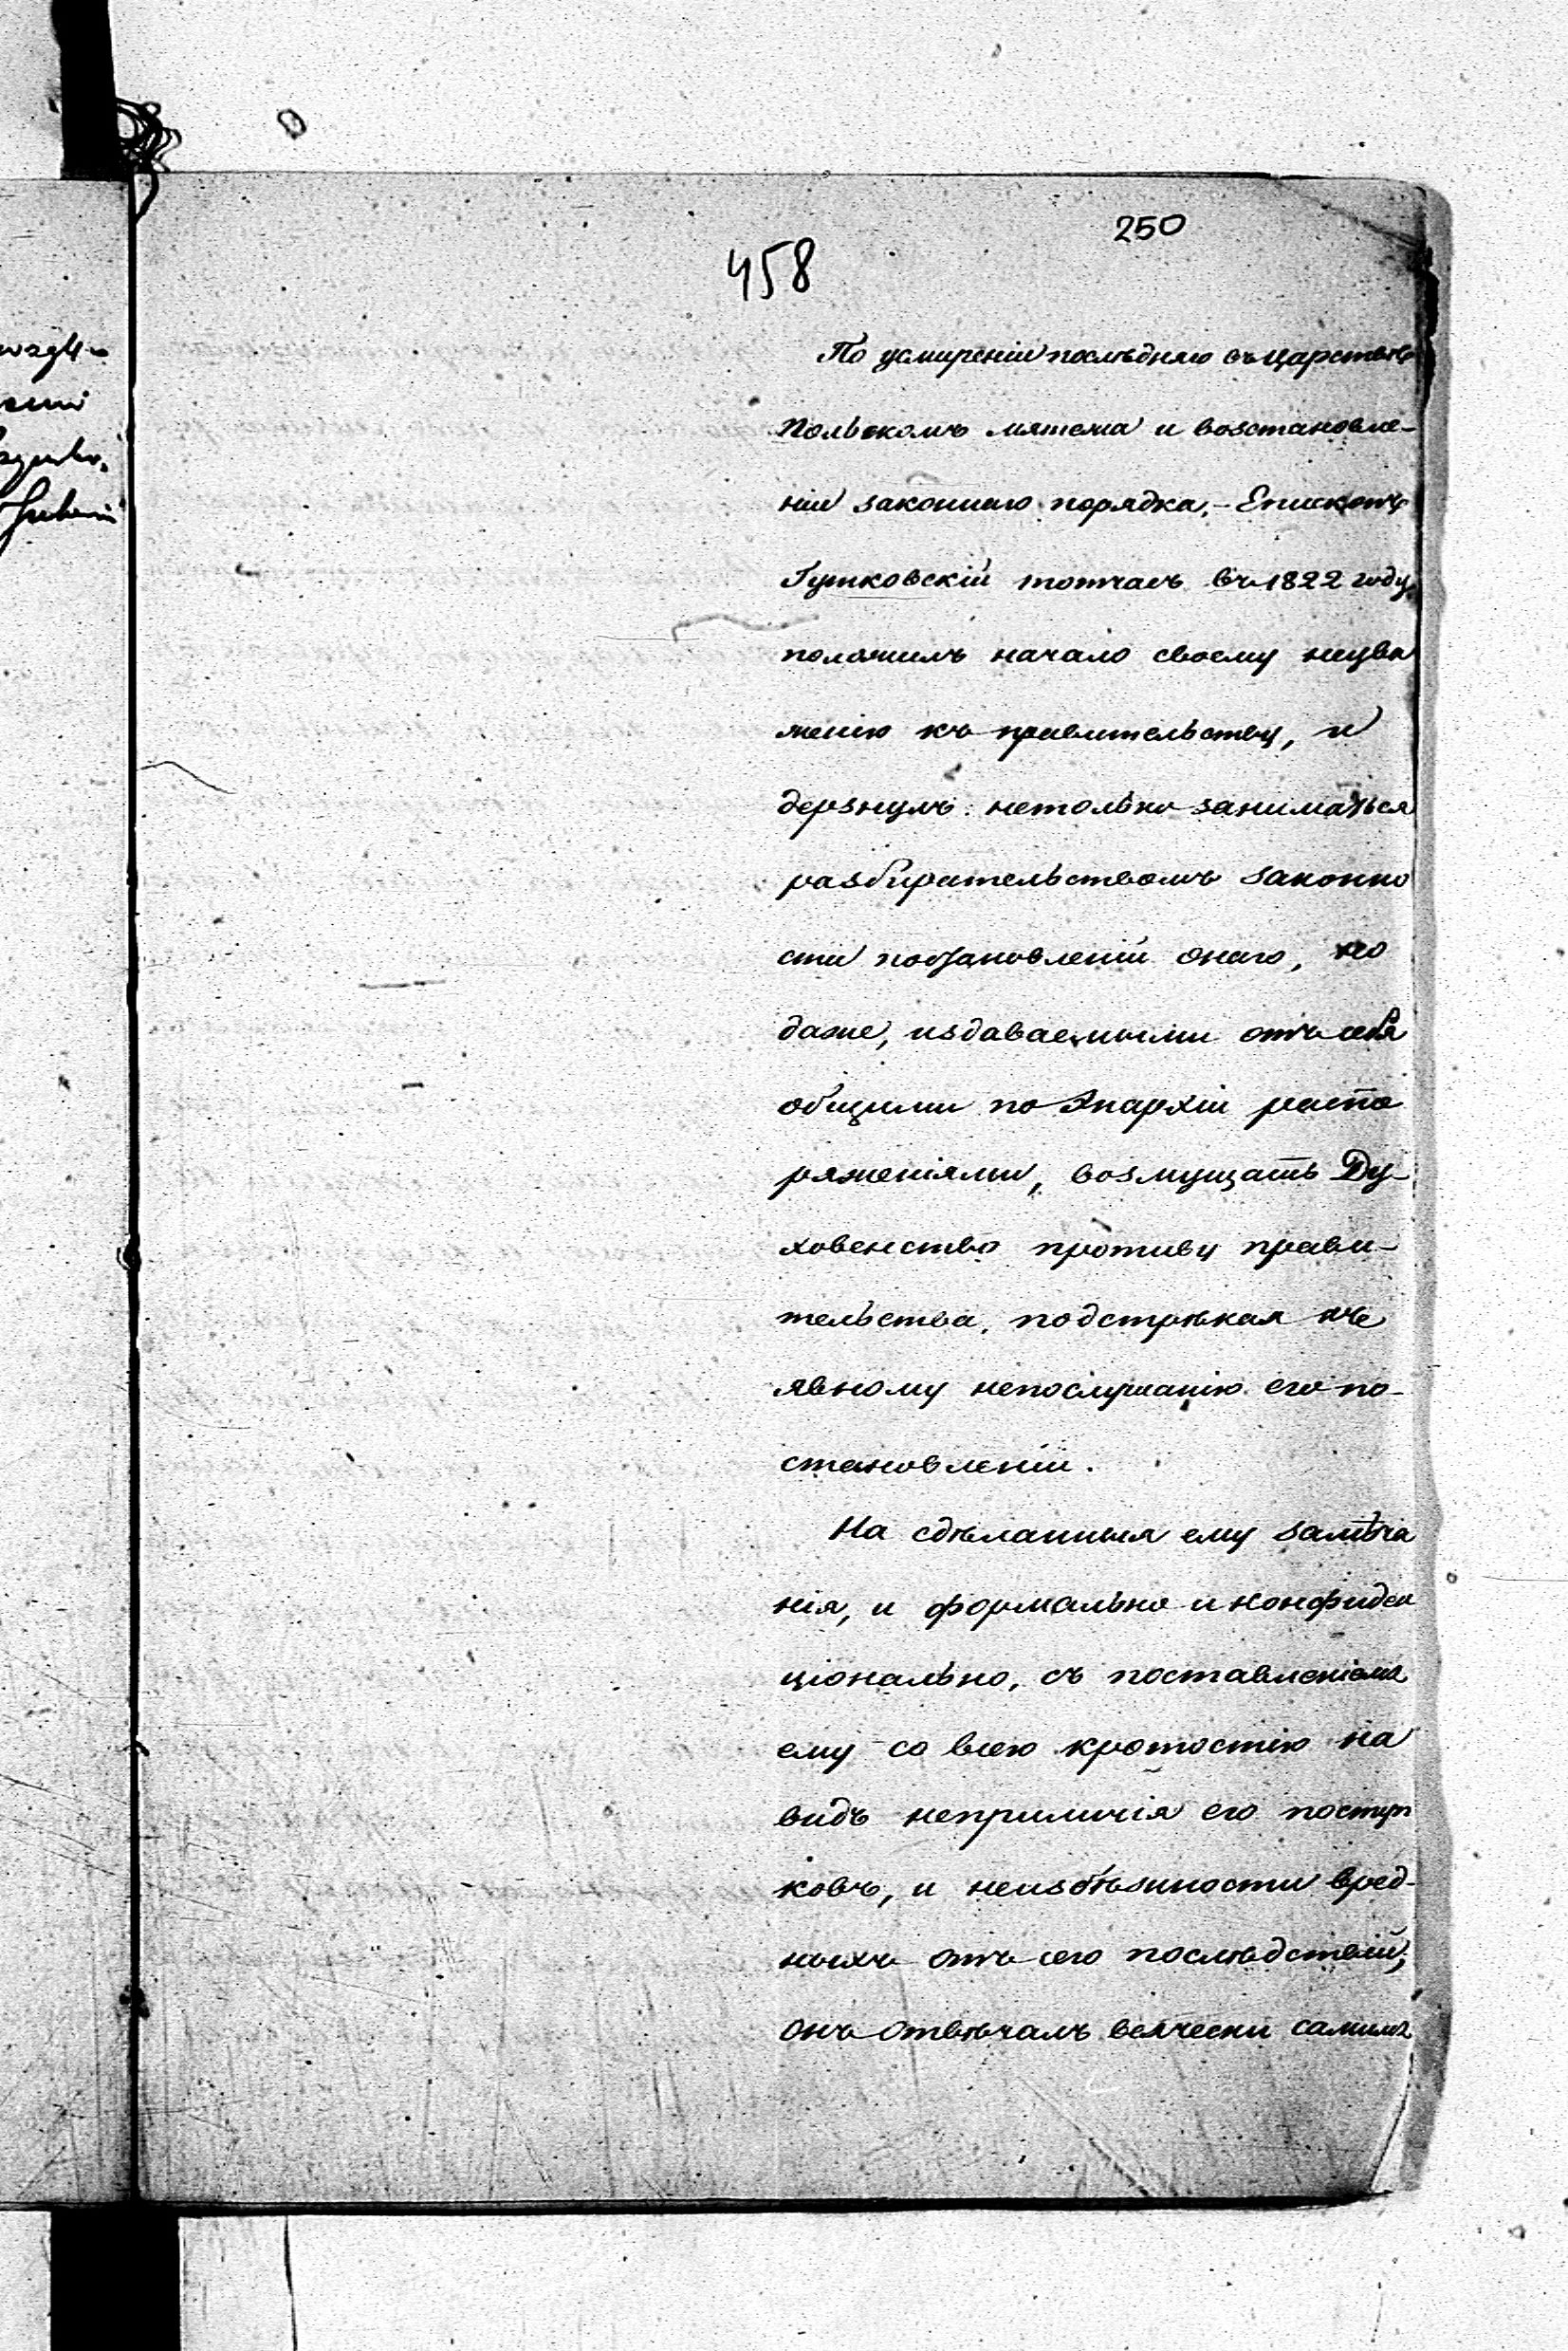 250
458
По усмиреніи послѣдняго въ царствѣ
Польскомъ мятежа и возстановле-
ніи законнаго порядка, - Епископъ
Гутковскій тотчасъ въ 1822 году,
положилъ начало своему неува
женію къ правительству, и
дерзнулъ нетолько заниматься
разбирательствомъ законно
сти постановленій онаго, но
даже, издаваемыми отъ себя
общими по Эпархіи распо
ряженіями, возмущать Ду-
ховенство противу прави-
тельства, подстрѣкая къ
явному непослушанію его по-
становленій.
На сдѣланныя ему замѣча
нія, и формально и конфиден
ціонально, съ поставленіемъ
ему со всею кротостію на
видъ неприличія его поступ
ковъ, и неизбѣзности вред-
ныхъ отъ сего послѣдствій,
онъ отвѣчалъ всячески самимъ